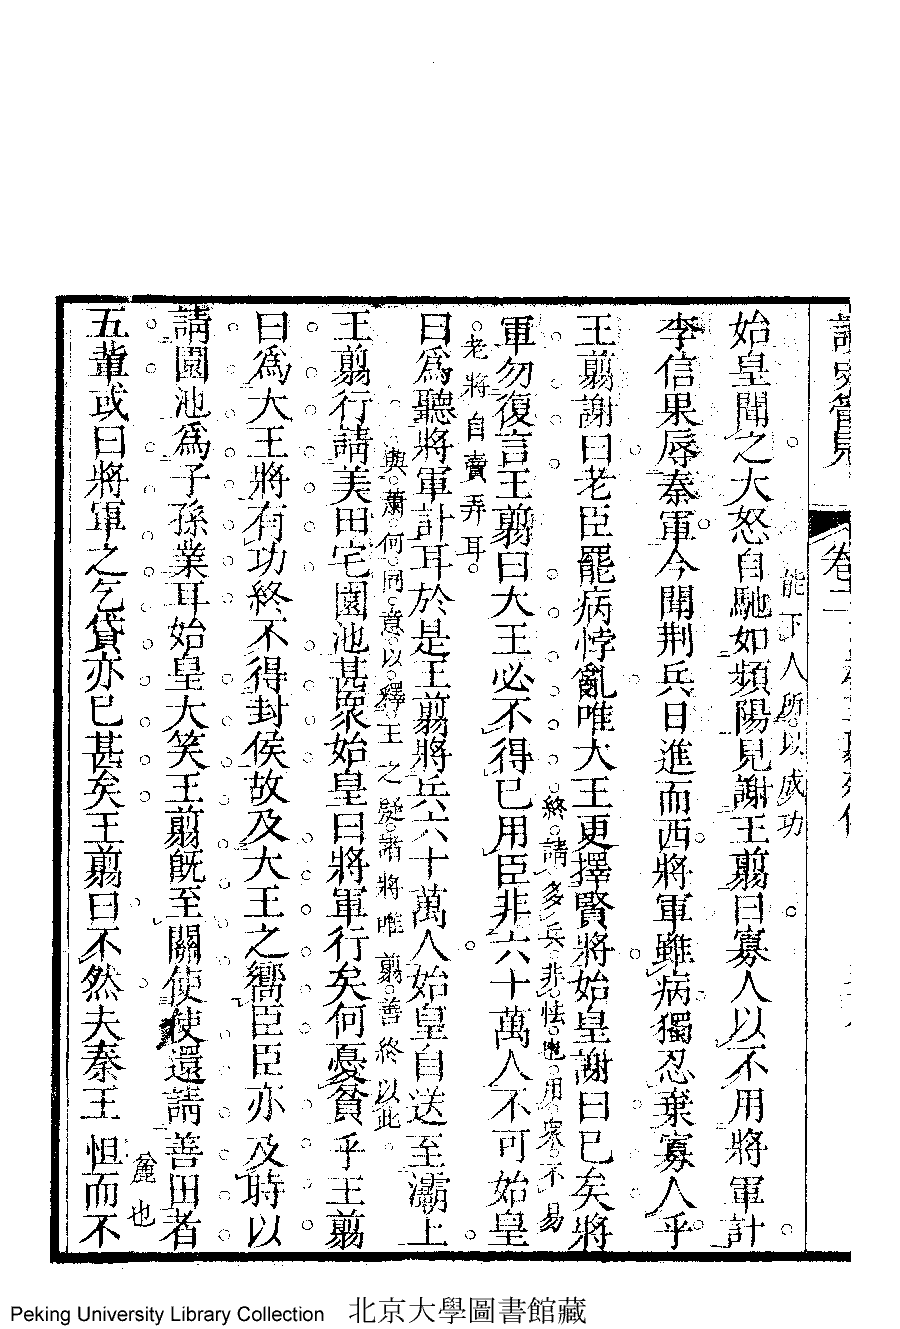 卷二
能下人所以成功
始皇聞之大怒自馳如頻陽見謝王翦曰寡人以不用將軍計
李信果辱秦軍今聞荆兵日進而西將軍雖病獨忍棄寡人乎
王翦謝曰老臣罷病悖亂唯大王更擇賢將始皇謝曰已矣將
終請多兵非怯也用衆不易
軍勿復言王翦曰大王必不得已用臣非六十萬人不可始皇
老將自賣弄耳
曰爲聽將軍計耳於是王翦將兵六十萬人始皇自送至灞上
與蕭何同意以釋王之疑諸將唯翦善終以此
王翦行請美田宅園池甚衆始皇曰將軍行矣何憂貧乎王翦
曰爲大王將有功終不得封侯故及大王之嚮臣臣亦及時以
請園池爲子孫業耳始皇大笑王翦旣至關使使還請善田者
麄也
五輩或曰將軍之乞貸亦已甚矣王翦曰不然夫秦王怚而不
Peking University Library Collection 北京大學圖書館藏